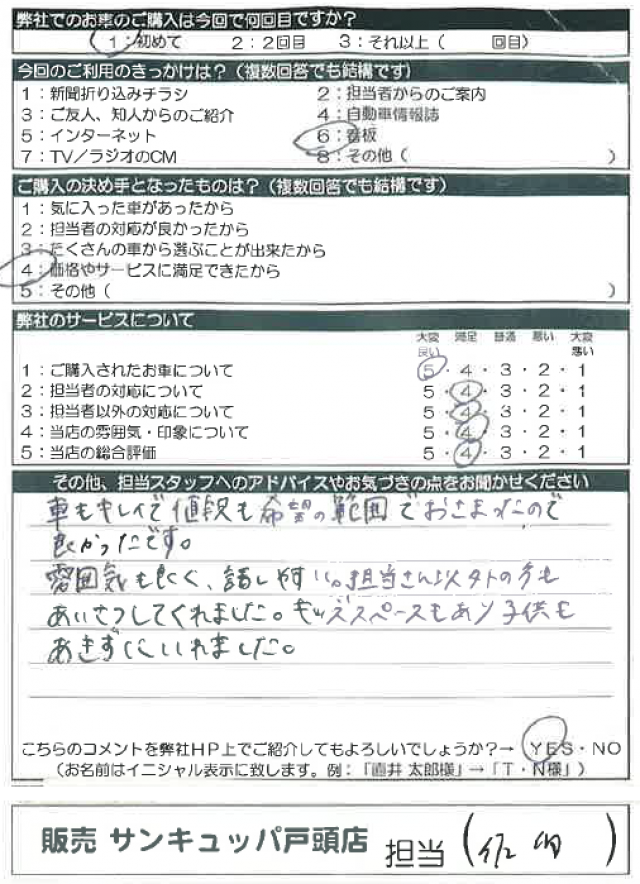 弊社でのお車のご購入は今回で何回目ですか？
1：初めて 2：2回目 3：それ以上（ 回目）
今回のご利用のきっかけは？（複数回答でも結構です）
1：新聞折り込みチラシ 2：担当者からのご案内
3：ご友人、知人からのご紹介 4：自動車情報誌
5：インターネット 6：看板
7：TV／ラジオのCM 8：その他（ ）
ご購入の決め手となったものは？（複数回答でも結構です）
1：気に入った車があったから
2：担当者の対応が良かったから
3：たくさんの車から選ぶことが出来たから
4：価格やサービスに満足できたから
5：その他（ ）
弊社のサービスについて
大変良い 満足 普通 悪い 大変悪い
1：ご購入されたお車について 5・4・3・2・1
2：担当者の対応について 5・4・3・2・1
3：担当者以外の対応について 5・4・3・2・1
4：当店の雰囲気・印象について 5・4・3・2・1
5：当店の総合評価 5・4・3・2・1
その他、担当スタッフへのアドバイスやお気づきの点をお聞かせください
車もキレイで値段も希望の範囲でおさまったので
良かったです。
雰囲気も良く、話しやすい。担当さん以外の方も
あいさつしてくれました。キッズスペースもあり子供も
あきずにいれました。
こちらのコメントを弊社HP上でご紹介してもよろしいでしょうか？→ YES・NO
（お名前はイニシャル表示に致します。例：「直井 太郎様」→「T・N様」）
販売 サンキュッパ戸頭店 担当（ ）